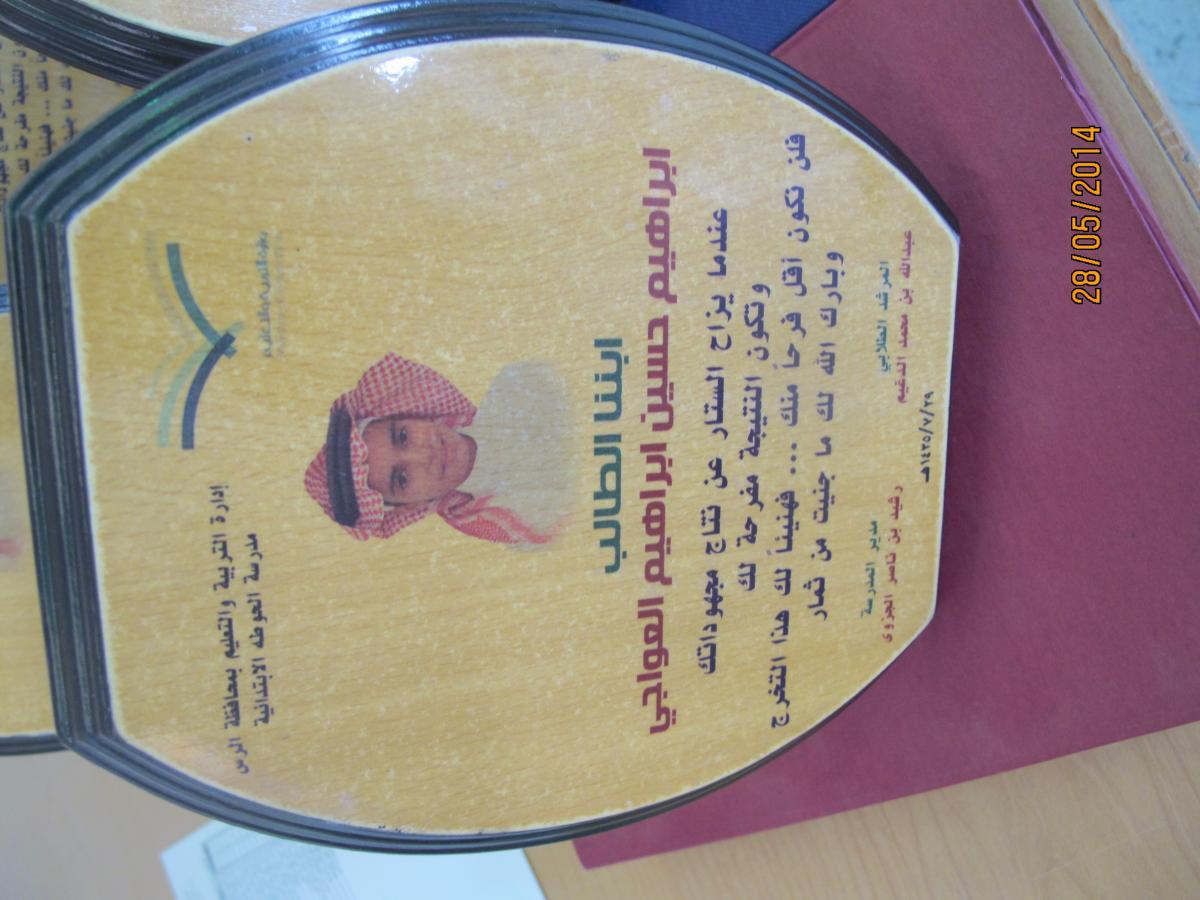 إدارة التربية والتعليم بمحافظة الرس
مدرسة الحوطه الابتدائية
ابننا الطالب
ابراهيم حسين ابراهيم العواجي
عندما يزاح الستار عن نتاج مجهوداتك
وتكون النتيجة مفرحة لك
فلن نكون أقل فرحاً منك ... فهنيئاً لك هذا التخرج
وبارك الله لك ما جنيت من ثمار
المرشد الطلابي
عبدالله بن محمد الدغيم
مدير المدرسة
رشيد بن ناصر الجزوى
١٤٣٥/٧/٢٩هـ
28/05/2014